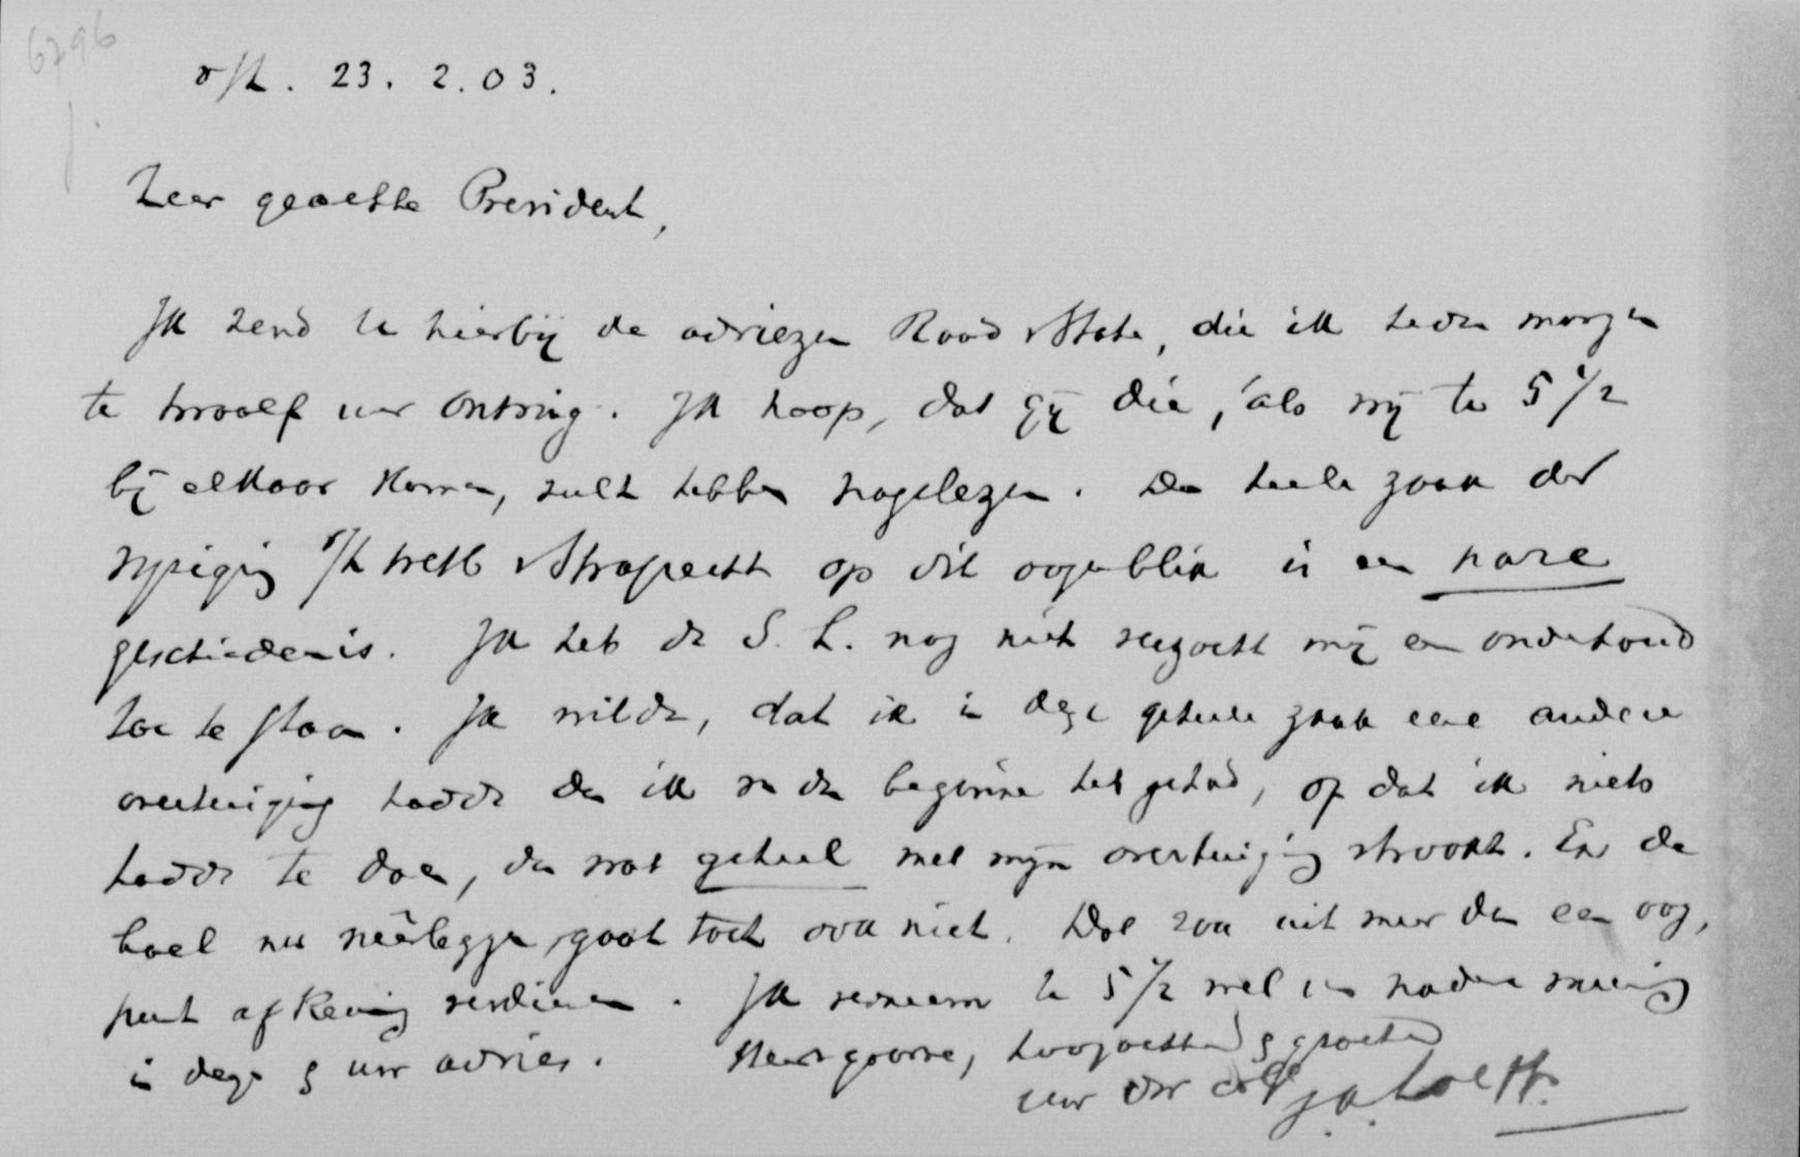 6796
v/h. 23.2.03.
Zeer geachte President,
Ik zend U hierbij de adviezen Raad v State, die ik heden morgen
te twaalf uur ontving. Ik hoop, dat gij die, als wij te 5 1/2
bij elkaar komen, zult hebben nagelezen. De heele zaak der
wijziging v/h wetb v Strafrecht op dit oogenblik is een nare
geschiedenis. Ik heb de S. L. nog niet verzocht mij een onderhoud
toe te staan. Ik wilde, dat ik in deze geheele zaak eene andere
overtuiging hadde dan ik van den beginne heb gehad, of dat ik niets
hadde te doen, dan wat geheel met mijn overtuiging strookt. En de
boel nu neêrleggen, gaat toch ook niet. Dat zou uit meer dan een oog,
punt afkeuring verdienen. Ik verneem te 5 1/2 wel uw nadere meening
in deze & uw advies. Hoogachtend & groetend
uw dw
J.A. Loeff.